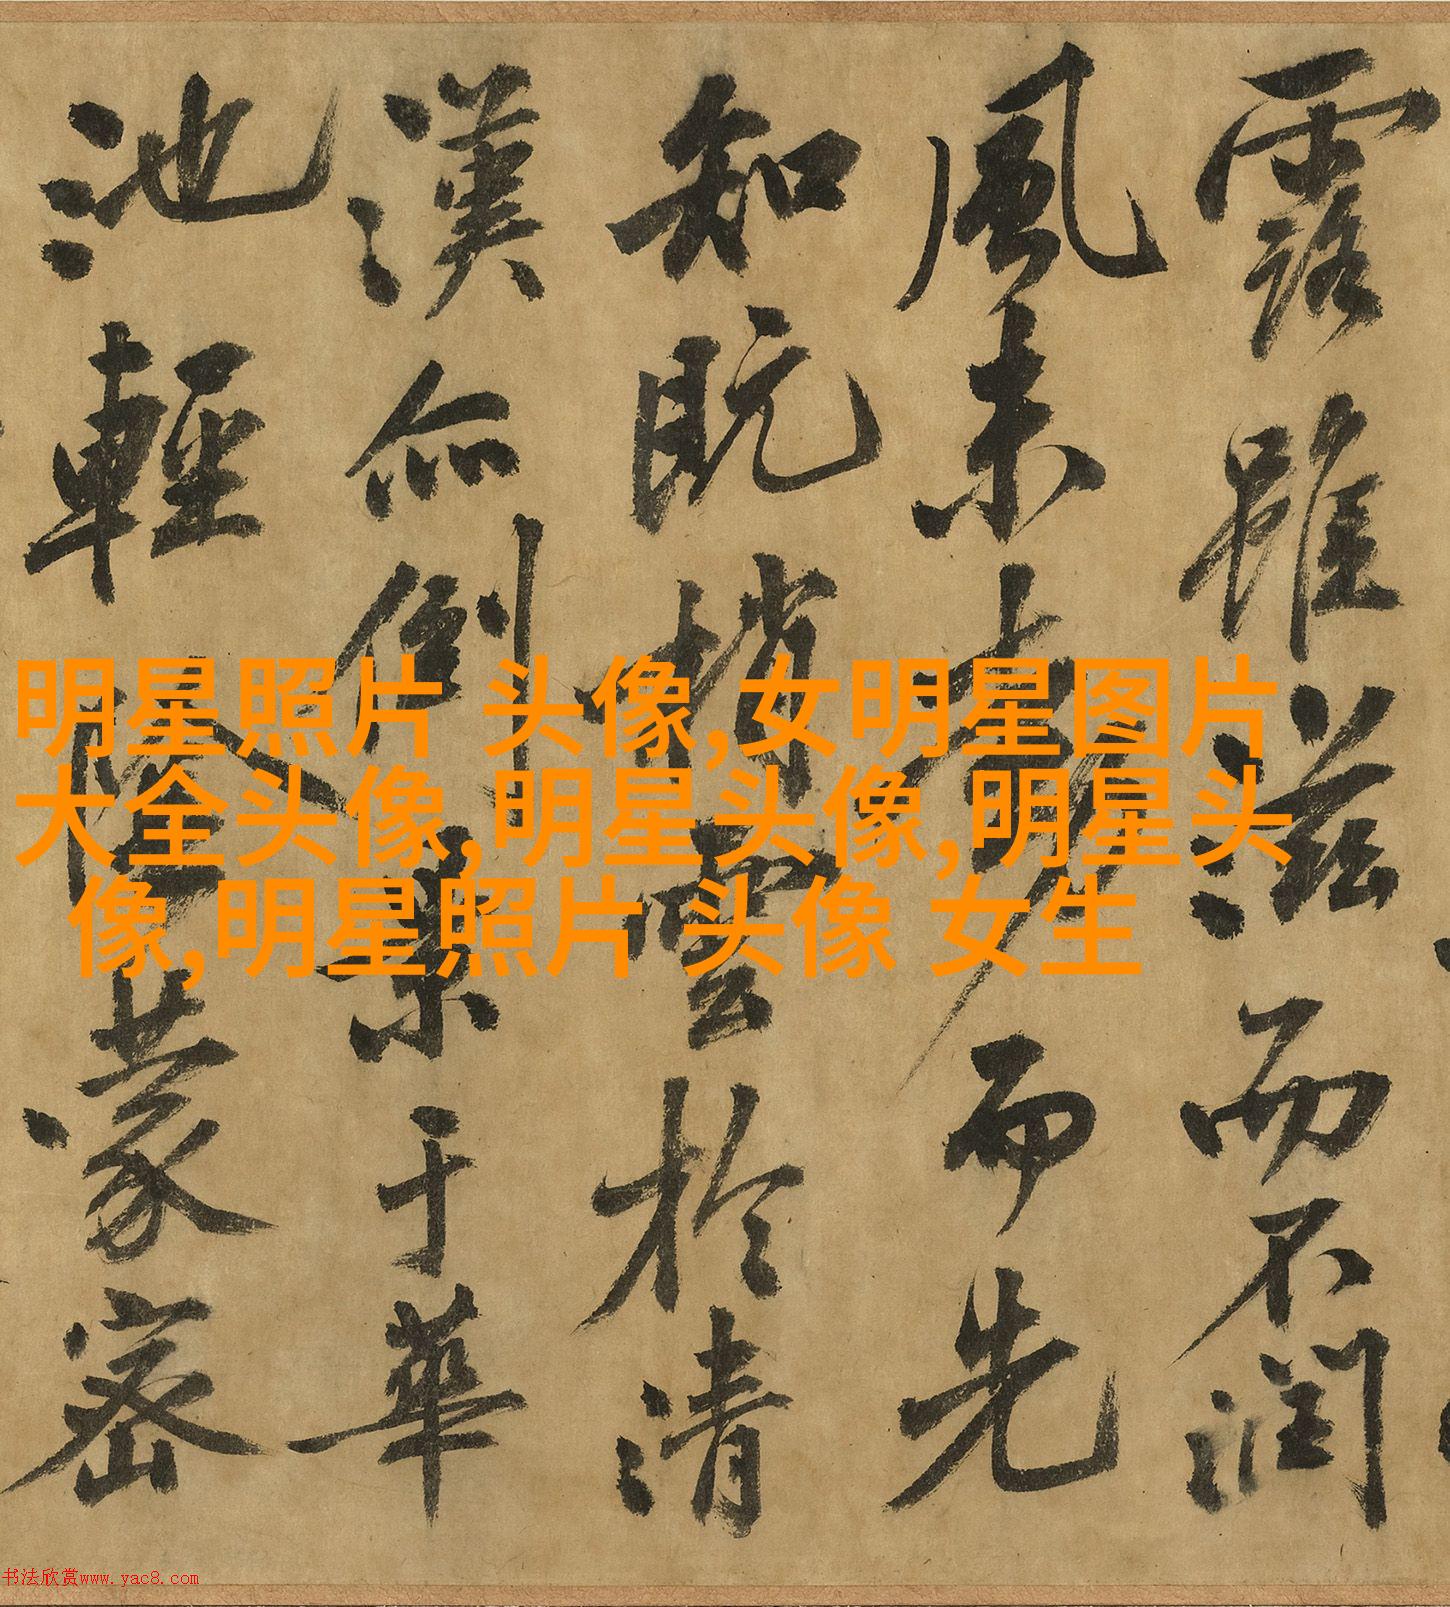 露雖滋而不潤
風未而先
知既捎雲於清
漢亦倒景于華
池輕陰蒙密
明星照片 头像,女明星图片
大全头像,明星头像,明星头
像,明星照片 头像 女生
书法欣赏www.yac8.com